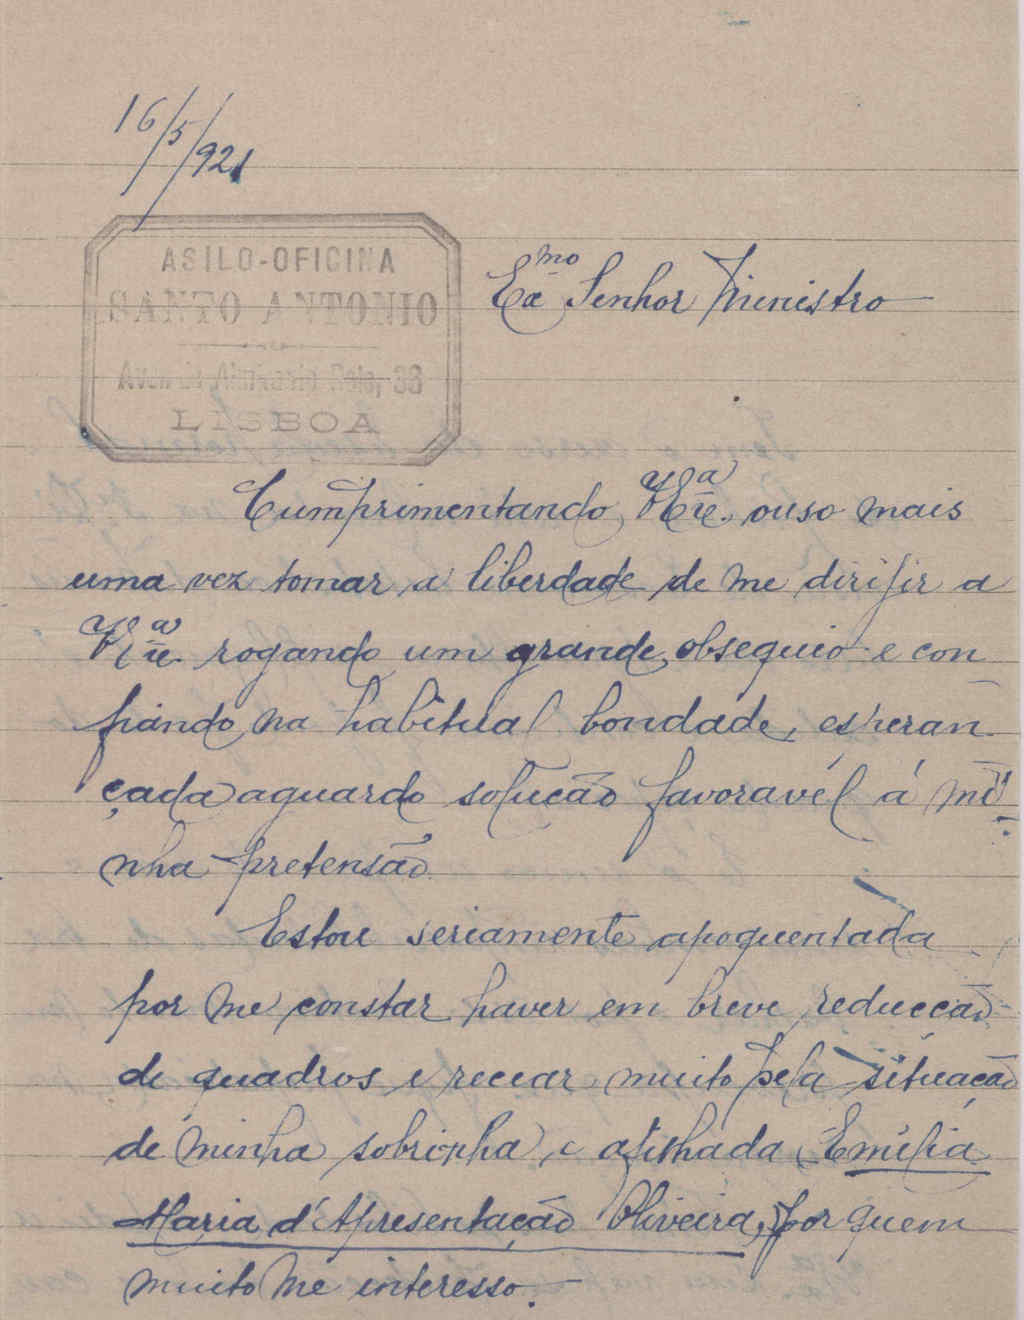 16/5/921
ASILO-OFICINA
SANTO ANTONIO
LISBOA
Exmo Senhor Ministro
Cumprimentando, V. Exa. ouso mais
uma vez tomar a liberdade de me dirijir a
V. Exa. rogando um grande obsequio e con
fiando na habitual bondade, esperan
çada aguardo solução favoravél á mi
nha pretensão.
Estou seriamente apoquentada
por me constar haver em breve reducção
de quadros e recear muito pela situação
de minha sobrinha e afilhada Emilia
Maria d'Apresentação Oliveira, por quem
muito me interesso.